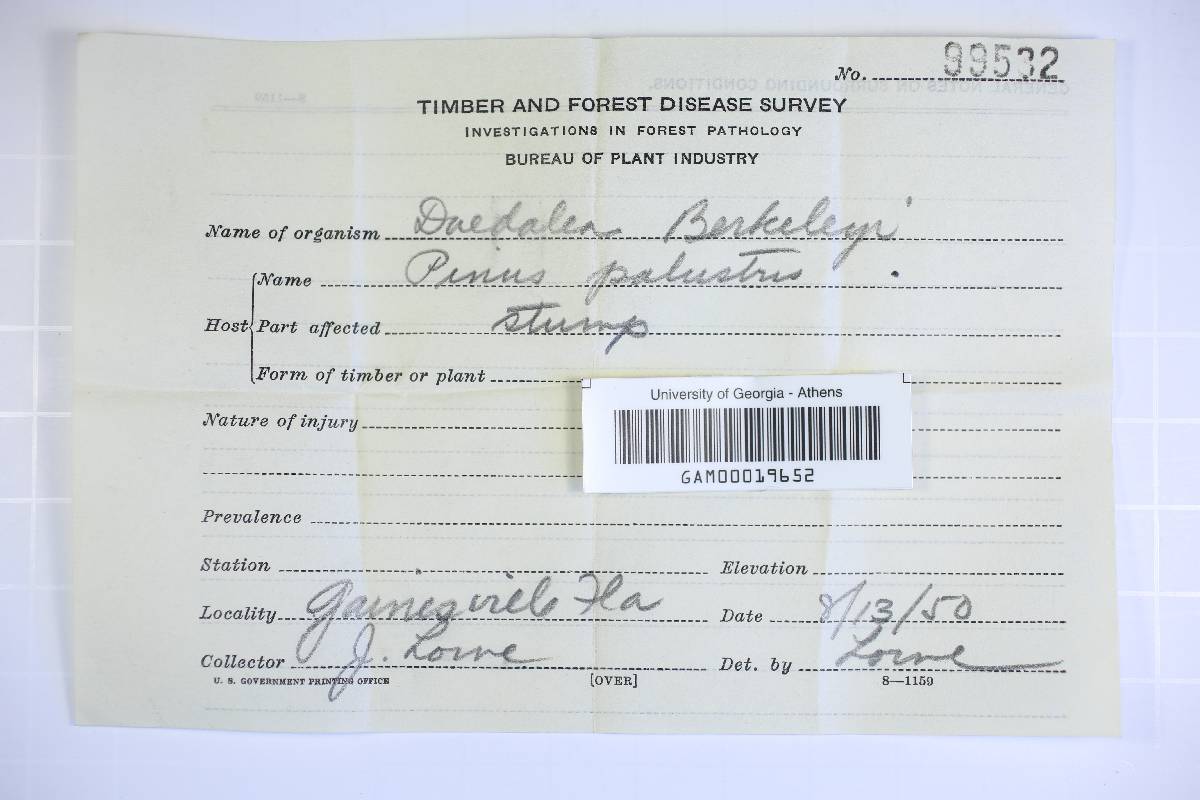 No. 99532
TIMBER AND FOREST DISEASE SURVEY
INVESTIGATIONS IN FOREST PATHOLOGY
BUREAU OF PLANT INDUSTRY
Name of organism Daedalea Berkeleyi
Host
Name Pinus palustris
Part affected stump
Form of timber or plant
University of Georgia - Athens
GAM00019652
Nature of injury
Prevalence
Station Elevation
Locality Gainesville Fla Date 8/13/50
Collector J. Lowe Det. by Lowe
U. S. GOVERNMENT PRINTING OFFICE [OVER] 8—1159